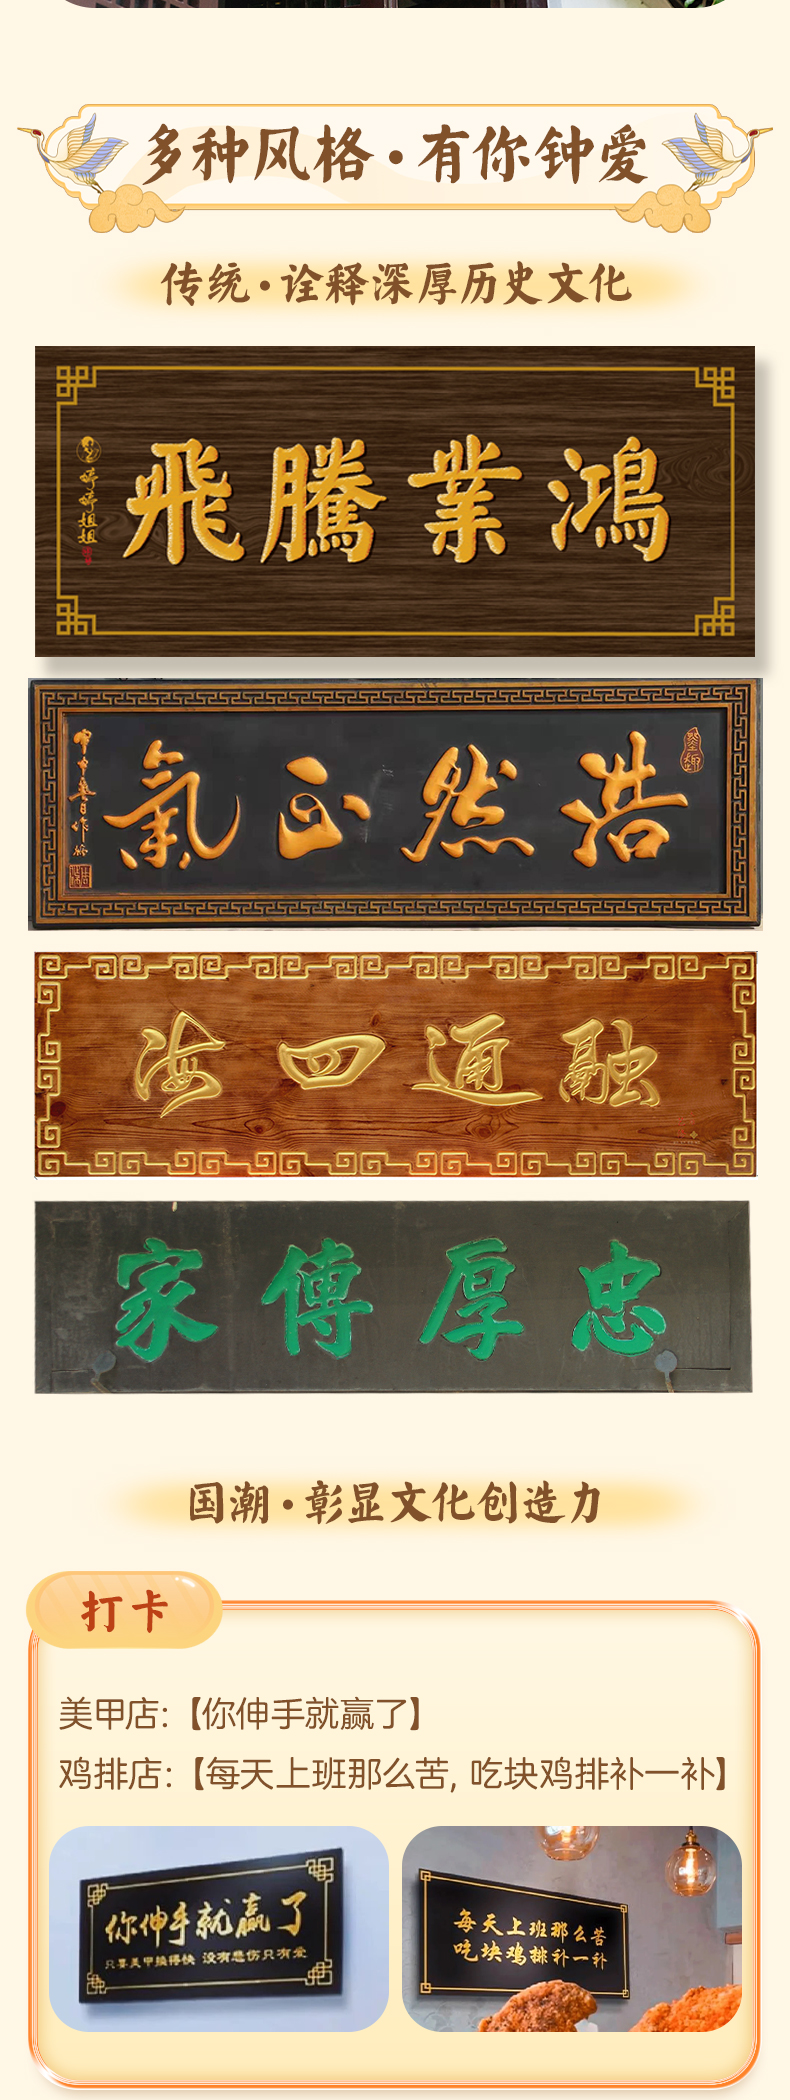 多种风格·有你钟爱
传统·诠释深厚历史文化
飛騰業鴻
婷婷姐姐
氣正然浩
海四通融
家傳厚忠
国潮·彰显文化创造力
打卡
美甲店:【你伸手就赢了】
鸡排店:【每天上班那么苦, 吃块鸡排补一补】
你伸手就赢了
只要美甲换得快 没有悲伤只有爱
每天上班那么苦
吃块鸡排补一补